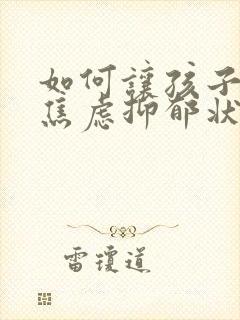 如何讓孩子
焦慮抑郁狀
雷瓊道